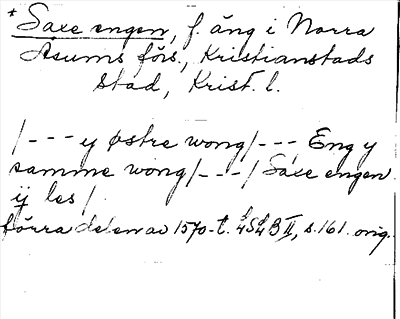 * Saxe engen, f. äng i Norra
Åsums förs., Kristianstads
stad, Krist. l.
/--- y østre wong/---, Eng y
samme wong/---/ Saxe engen
ij les/
förra delen av 1570-t. S B II, s. 161. orig.